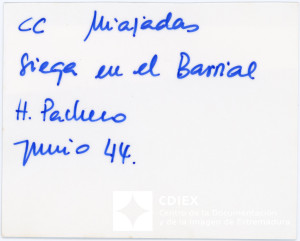 CC Miajadas
Siega en el Barrial
H. Pacheco
Junio 44.
CDIEX